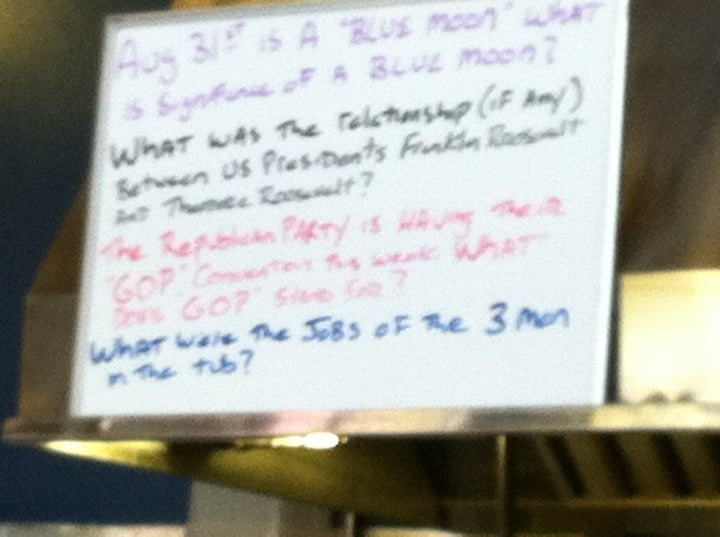 Aug 31st is A "Blue moon" What
is Signifance of A Blue moon?
What was The relationship (if Any)
Between US Presidents Franklin Roosevelt
And Theodore Roosevelt?
The Republican PARTY is HAVing Their
"GOP" Convention This week. WHAT
Does "GOP" Stand for?
WHAT were The JoBS oF The 3 Men
in The tub?